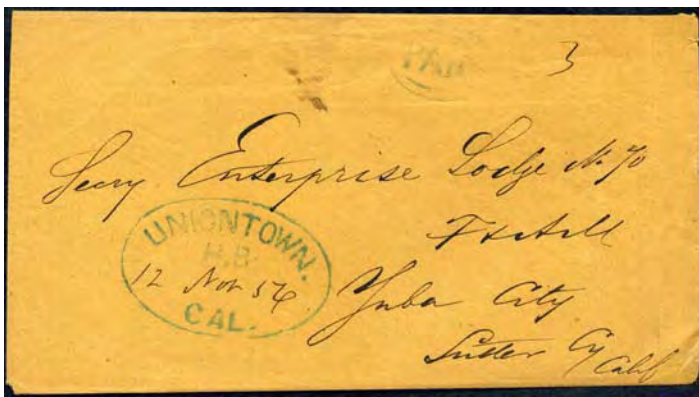 PAID 3
Secry. Enterprise Lodge No. 70
F & A M
UNIONTOWN.
H.B.
12 Nov 56 Yuba City
CAL.
Sutter Cy
Calif